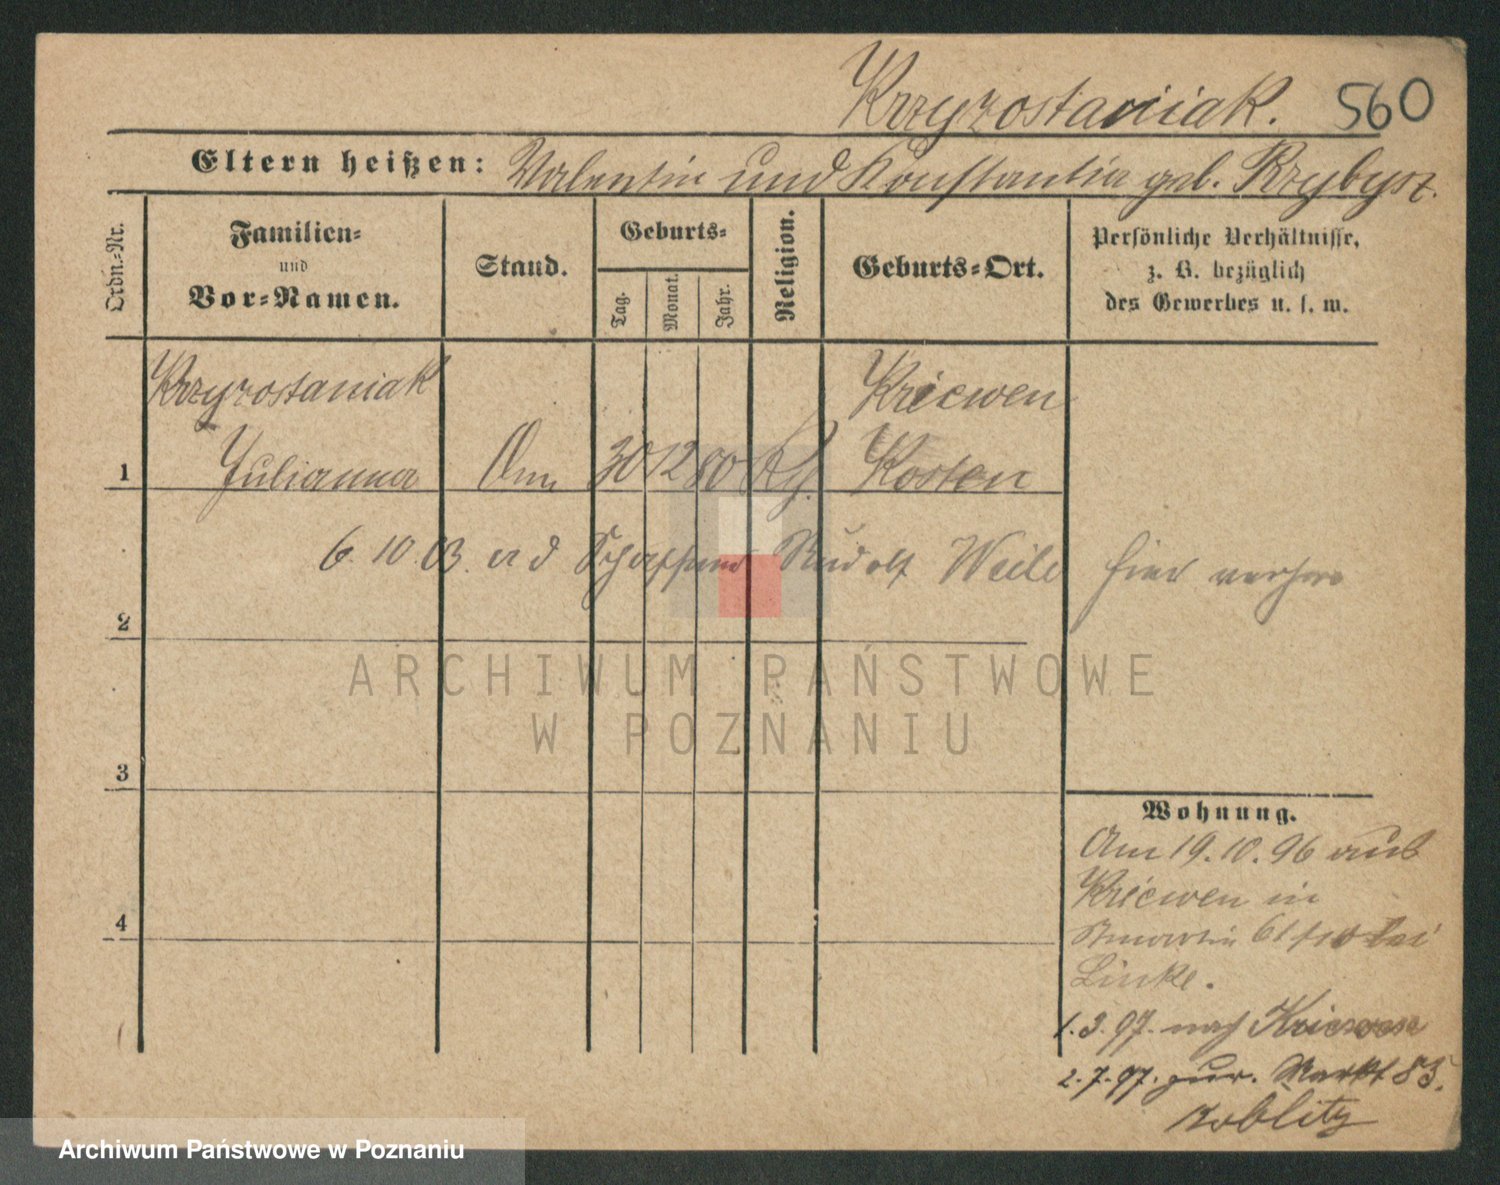 Krzyzostaniak. 560
Eltern heißen: Valentin und Konstantia geb. Krzybysz.
Ordn.-Nr.
Familien-
und
Vor-Namen.
Stand.
Geburts-
Tag.
Monat.
Jahr.
Religion.
Geburts-Ort.
Persönliche Verhältnisse,
z. B. bezüglich
des Gewerbes u. s. w.
Krzyzostaniak Kriewen
1 Julianna 30 12 80 Kosten
6. 10. 03. Rudolf Weile hier
2
ARCHIWUM PAŃSTWOWE
W POZNANIU
3
Wohnung.
Am 19. 10. 96 aus
Kriewen in
4
61 bei
Linke.
1. 3. 97. nach Kriewen
2. 7. 97. zur. Markt 85.
Archiwum Państwowe w Poznaniu